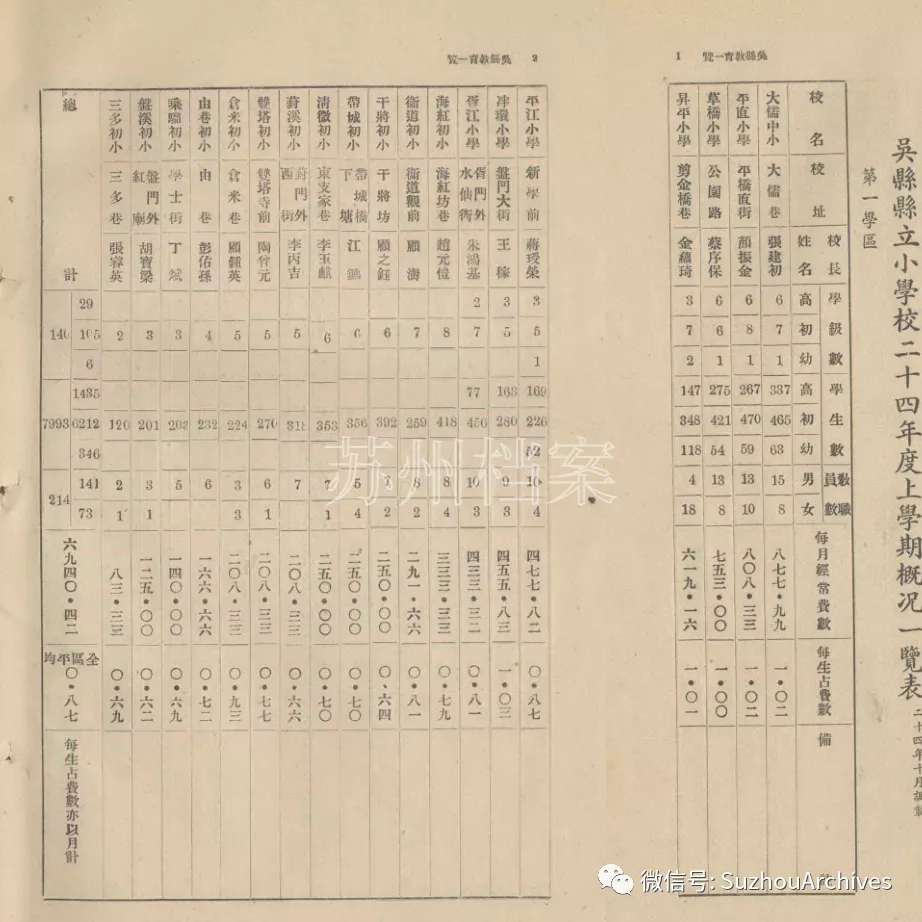 吳縣教育一覽 1
吳縣縣立小學校二十四年度上學期概況一覽表 二十四年十月
第一學區
校名 校址 校長姓名 學級數 高 初 幼 學生數 高 初 幼 教職員數 男 女 每月經常費數 每生占費數 備
大儒中小 大儒巷 張建初 6 7 1 337 465 63 15 8 八七七・九九 一・〇二
平直小學 平橋直街 顏振金 6 8 1 267 470 59 13 10 八〇八・三三 一・〇二
草橋小學 公園路 蔡序保 6 6 1 275 421 54 13 8 七五三・〇〇 一・〇〇
昇平小學 剪金橋巷 金蘊琦 3 7 2 147 348 118 4 18 六一九・一六 一・〇一
吳縣教育一覽 2
平江小學 新學前 蔣瑗榮 3 5 1 169 226 52 10 4 四七七・八二 〇・八七
小學 盤門大街 王稼 3 5 163 280 9 3 四五五・八三 一・〇三
胥江小學 胥門外水仙衖 朱鴻基 2 7 77 456 10 3 四三三・三二 〇・八一
海紅初小 海紅坊巷 趙元愷 8 418 8 4 三三三・三三 〇・七九
衞道初小 衞道觀前 顧濤 7 259 8 2 二九一・六六 〇・八一
干將初小 干將坊 顧之鈺 6 392 7 2 二五〇・〇〇 〇、六四
帶城初小 帶城橋下塘 江 6 356 5 4 二五〇・〇〇 〇・七〇
清微初小 東支家巷 李玉麒 6 353 7 1 二五〇・〇〇 〇・七〇
葑溪初小 葑門外西街 李丙吉 5 318 7 二〇八・三三 〇・六六
雙塔初小 雙塔寺前 陶元 5 270 6 1 二〇八・三三 〇・七七
倉米初小 倉米巷 顧鍾英 5 224 3 3 二〇八・三三 〇・九三
由巷初小 由巷 彭佑孫 4 232 6 一六六・六六 〇・七二
乘騮初小 學士街 丁斌 3 203 5 一四〇・〇〇 〇・六九
盤溪初小 盤門外紅廟 胡寶梁 3 201 3 1 一二五・〇〇 〇・六二
三多初小 三多巷 張睿英 2 120 2 1 八三・三三 〇・六九
總計 29 105 6 140 1435 6212 346 7993 141 73 214 六九四〇・四二 全區平均 〇・八七 每生占費數亦以月計
苏州档案
微信号: SuzhouArchives